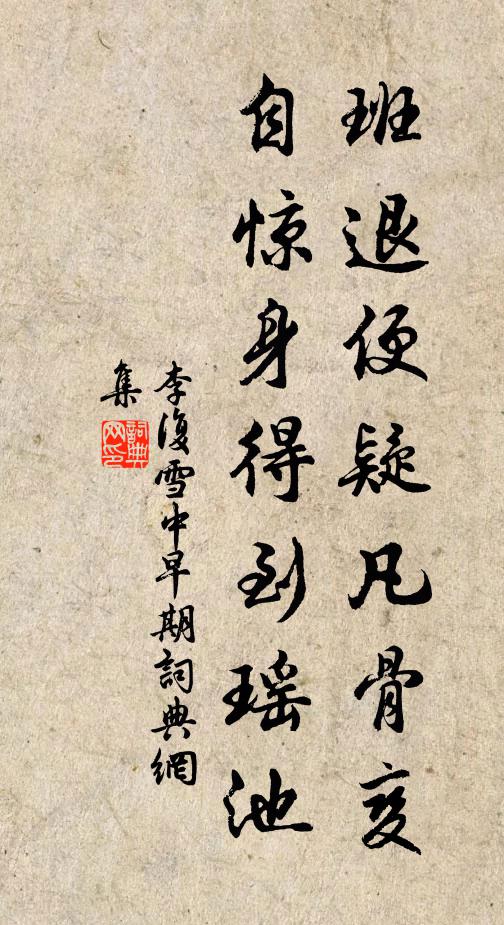 班退便疑凡骨变
自惊身得到瑶池
李復雪中早期詞典網
集
詞典网印